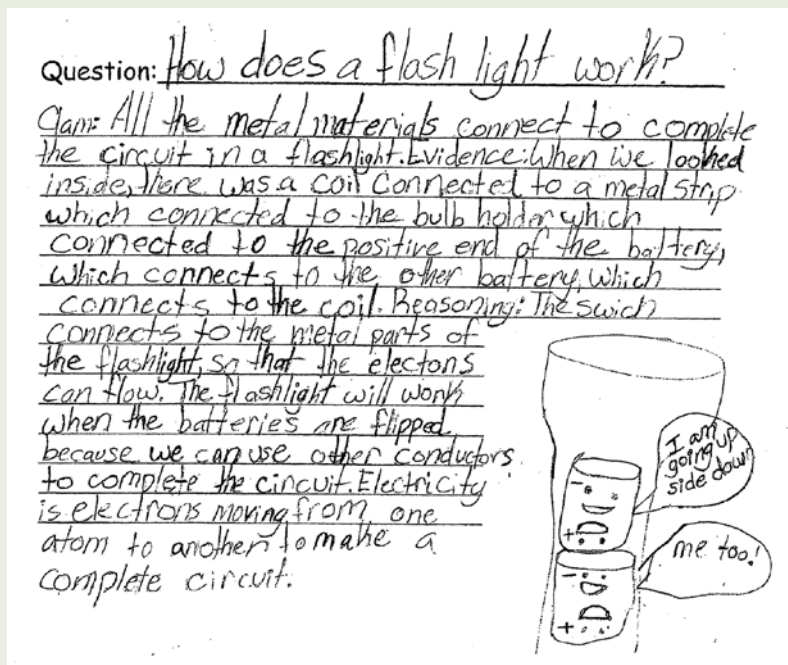 Question: How does a flash light work?
Claim: All the metal materials connect to complete
the circuit in a flashlight. Evidence: When we looked
inside, there was a coil connected to a metal strip
which connected to the bulb holder which
connected to the positive end of the battery,
which connects to the other battery, which
connects to the coil. Reasoning: The swich
connects to the metal parts of
the flashlight, so that the electons
can flow. The flashlight will work
when the batteries are flipped
because we can use other conductors
to complete the circuit. Electricity
is electrons moving from one
atom to another to make a
complete circuit.
I am
going up
side down
me too!
-
+
-
+